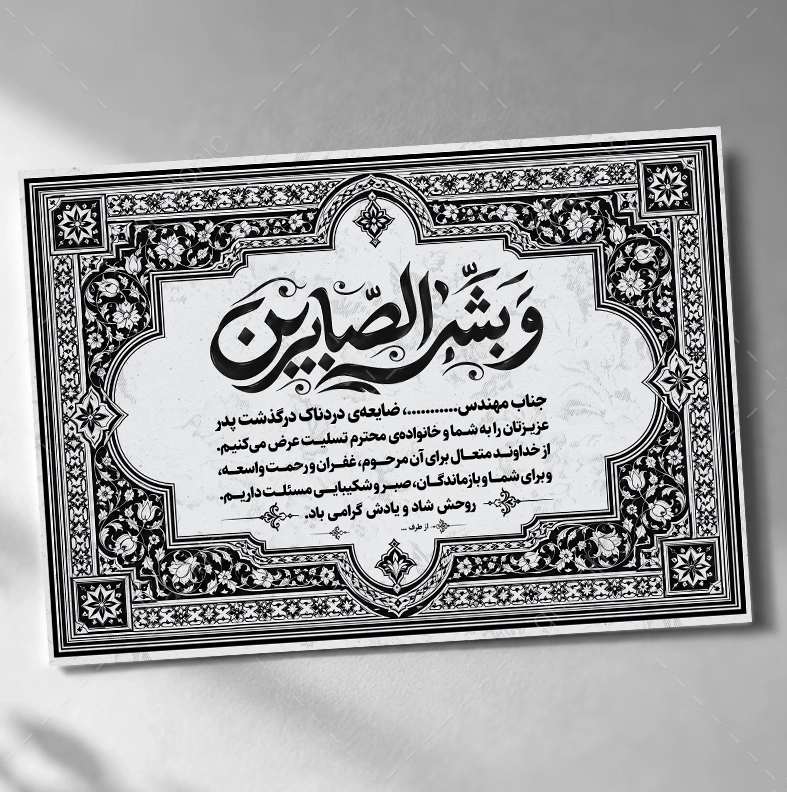 وَبَشِّرِ الصَّابِرِین
جناب مهندس...........، ضایعه‌ی دردناک درگذشت پدر
عزیزتان را به شما و خانواده‌ی محترم تسلیت عرض می‌کنیم.
از خداوند متعال برای آن مرحوم، غفران و رحمت واسعه،
و برای شما و بازماندگان، صبر و شکیبایی مسئلت داریم.
روحش شاد و یادش گرامی باد.
از طرف ...